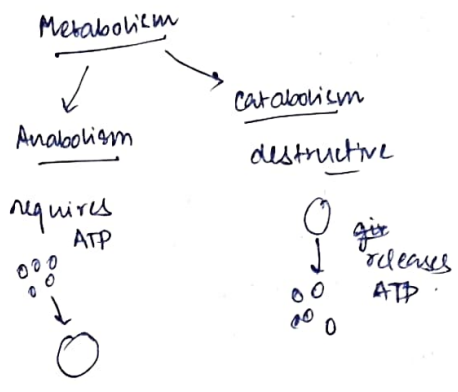 Metabolism
Anabolism
requires
ATP
Catabolism
destructive
releases
ATP.